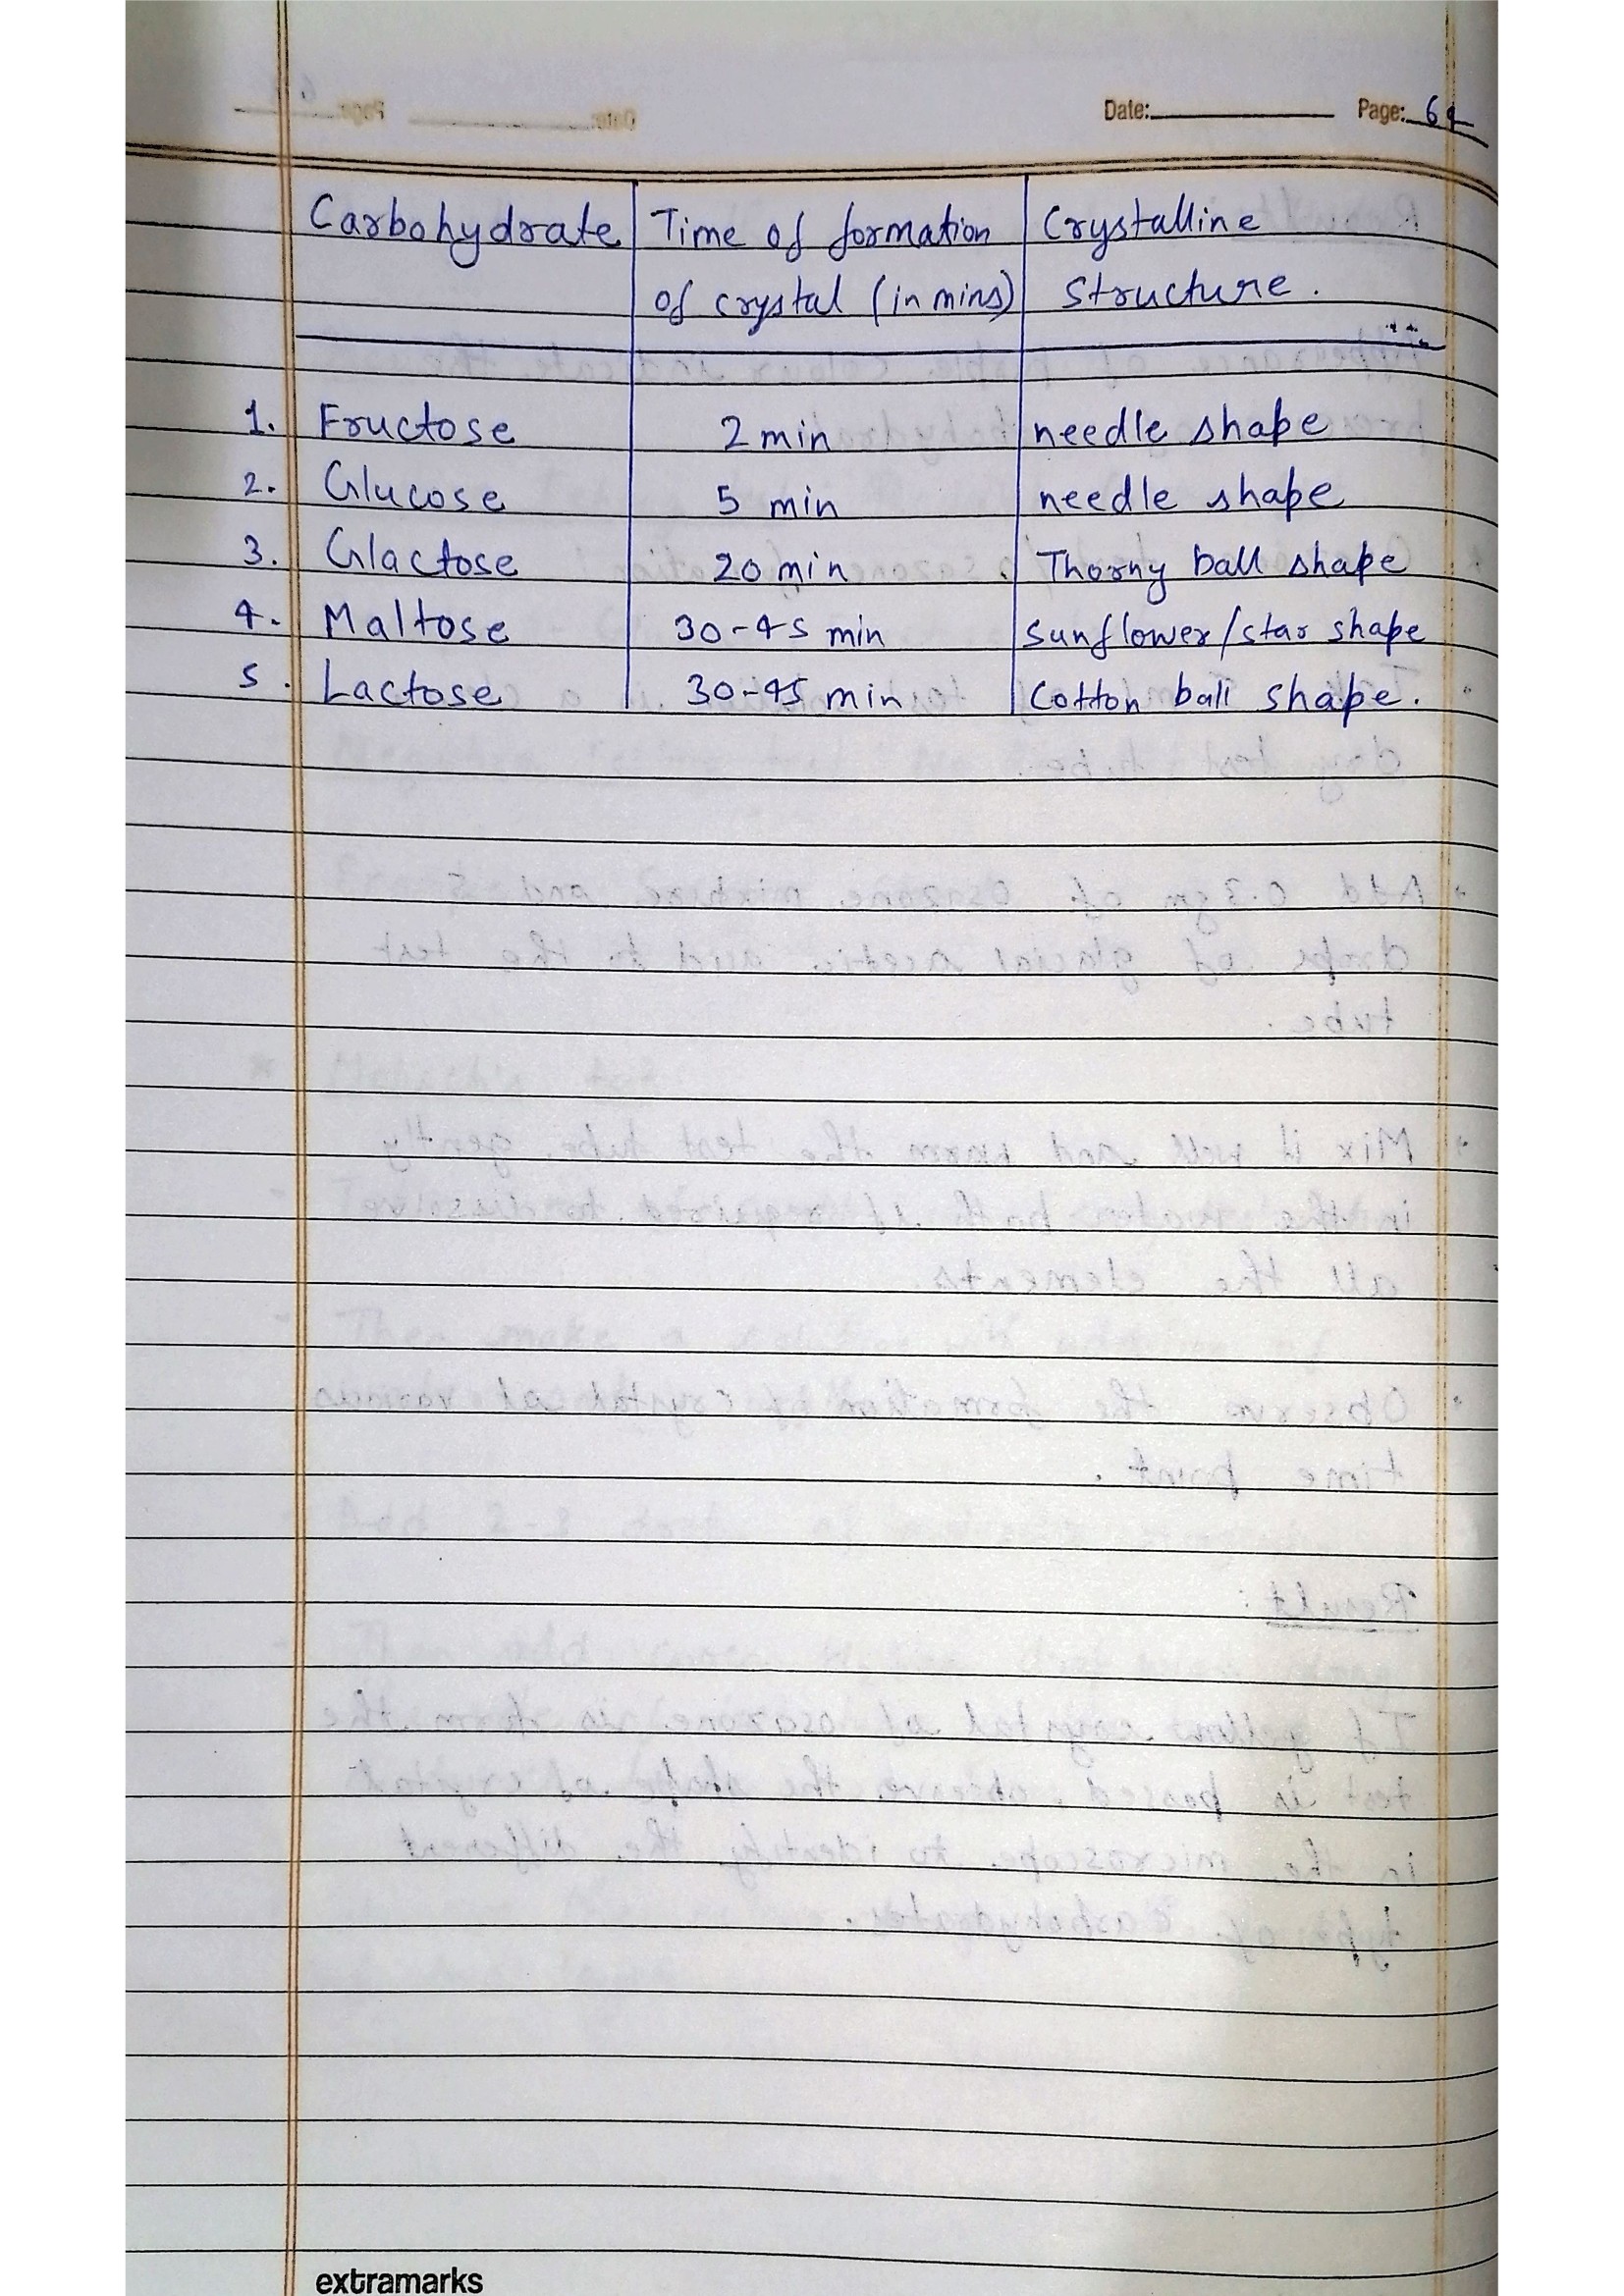 Date: Page: 64
Carbohydrate | Time of formation | Crystalline
of crystal (in mins) | Structure.
1. Fructose | 2 min | needle shape
2. Glucose | 5 min | needle shape
3. Glactose | 20 min | Thorny ball shape
4. Maltose | 30-45 min | Sunflower/star shape
5. Lactose | 30-45 min | Cotton ball shape.
extramarks